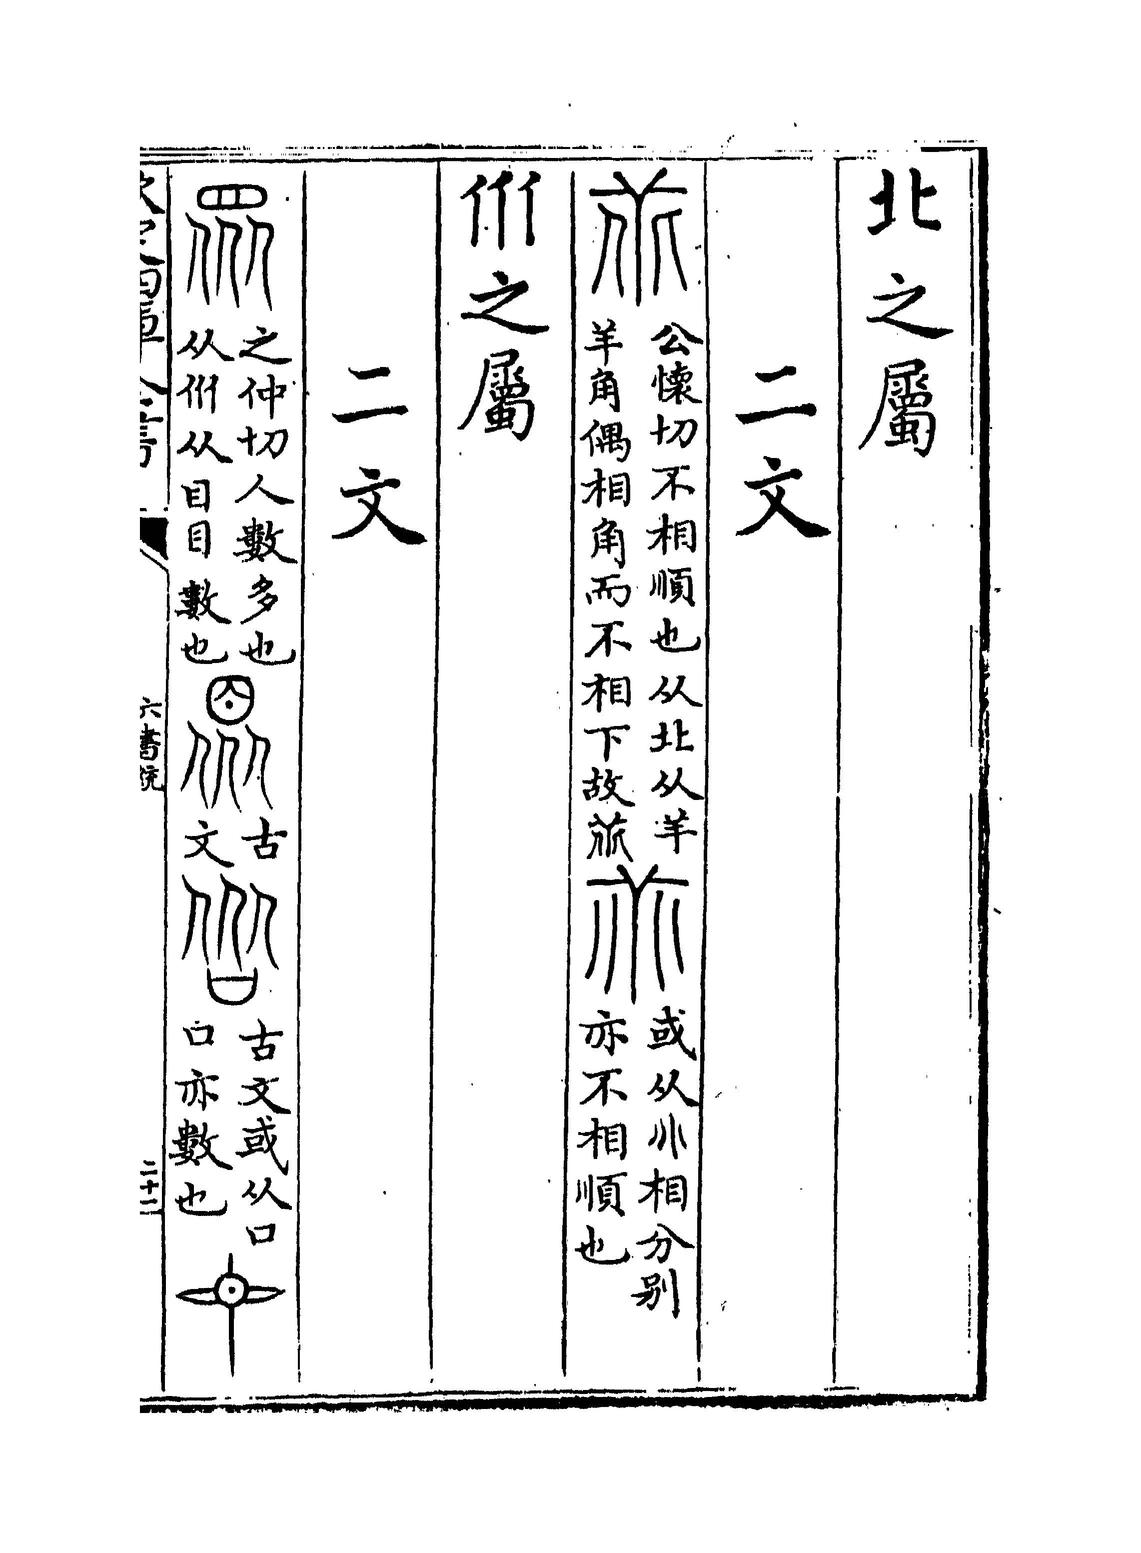 北之屬
二文
公懷切不相順也从北从羊
羊角偶相角而不相下故𦮃
或从八八相分别
亦不相順也
㐺之屬
二文
之仲切人數多也
从㐺从目目數也
古文
古文或从口
口亦數也
欽定四庫全書
六書統
二十二